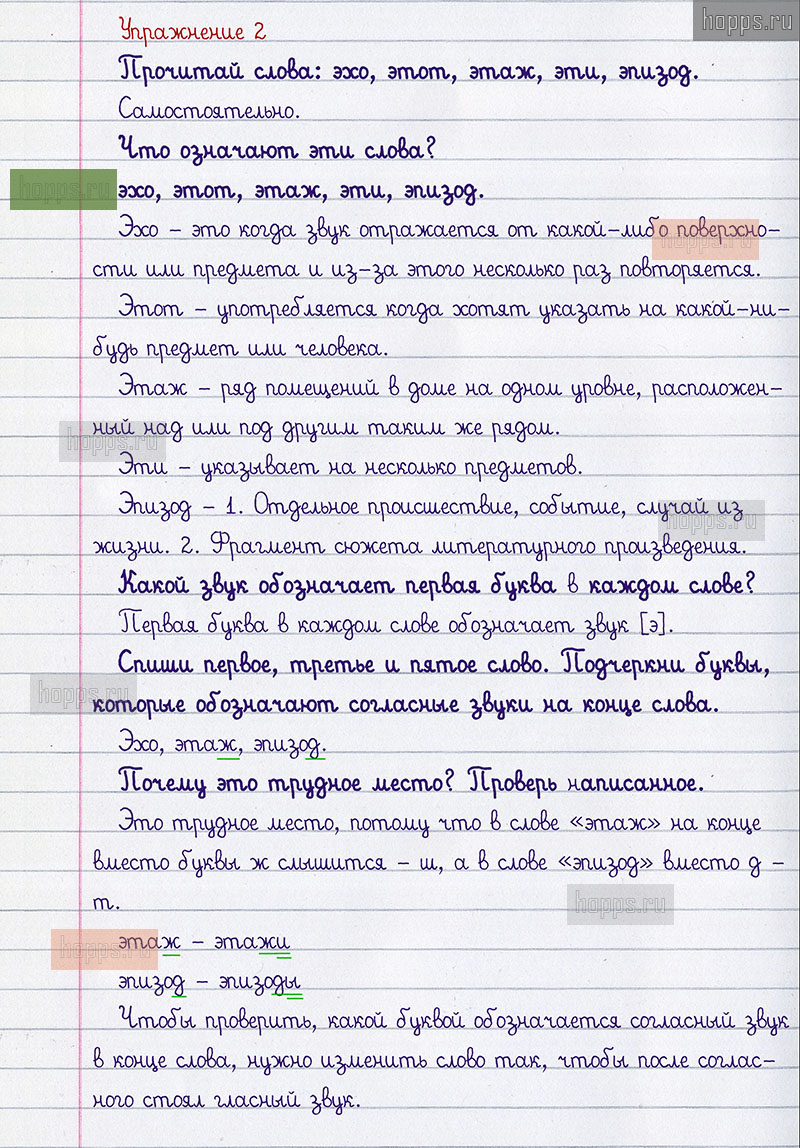 hopps.ru
Упражнение 2
Прочитай слова: эхо, этот, этаж, эти, эпизод.
Самостоятельно.
Что означают эти слова?
hopps.ru
эхо, этот, этаж, эти, эпизод.
Эхо – это когда звук отражается от какой-либо поверхно-
hopps.ru
сти или предмета и из-за этого несколько раз повторяется.
Этот – употребляется когда хотят указать на какой-ни-
будь предмет или человека.
Этаж – ряд помещений в доме на одном уровне, расположен-
ный над или под другим таким же рядом.
hopps.ru
Эти – указывает на несколько предметов.
Эпизод – 1. Отдельное происшествие, событие, случай из
hopps.ru
жизни. 2. Фрагмент сюжета литературного произведения.
Какой звук обозначает первая буква в каждом слове?
Первая буква в каждом слове обозначает звук [э].
Спиши первое, третье и пятое слово. Подчеркни буквы,
hopps.ru
которые обозначают согласные звуки на конце слова.
Эхо, этаж, эпизод.
Почему это трудное место? Проверь написанное.
Это трудное место, потому что в слове «этаж» на конце
вместо буквы ж слышится – ш, а в слове «эпизод» вместо д –
т.
hopps.ru
этаж – этажи
hopps.ru
эпизод – эпизоды
Чтобы проверить, какой буквой обозначается согласный звук
в конце слова, нужно изменить слово так, чтобы после соглас-
ного стоял гласный звук.